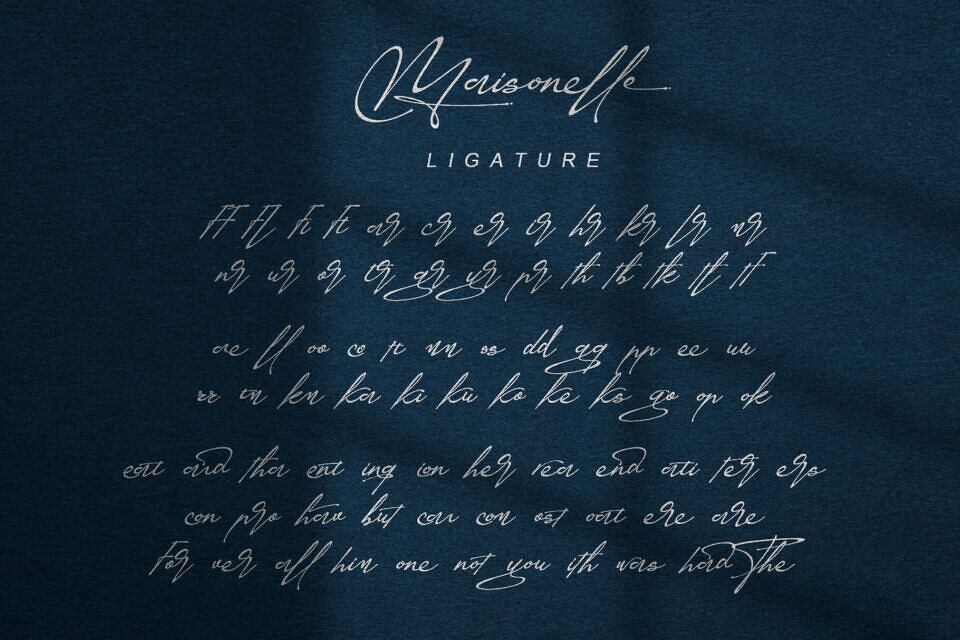 Maisonelle
LIGATURE
ff fl fi ft ar cr er ir hr kr lr nr
nr ur or tr gr yr pr th tb tk tl tf
ae ll oo co rt nn ss dd gg pp ee uu
rr in kn ka ki ku ko ke ks go op ok
eat and tha ent ing ion her rea end ati ter ers
con pro hav but can com ost oat ere are
for ver all him one not you ith was had The